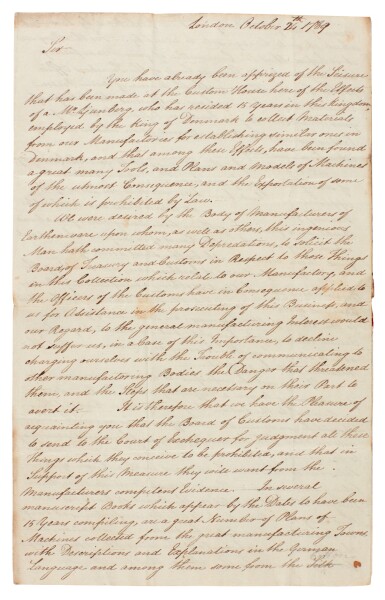 London October 24th 1789
Sir
You have already been apprized of the Seizure
that has been made at the Custom House here of the Effects
of a Mr. Ljunberg, who has resided 15 Years in this Kingdom,
employed by the King of Denmark to collect Materials
from our Manufactories for establishing similar ones in
Denmark, and that among these Effects, have been found
a great many Tools, and Plans and Models of Machines
of the utmost Consequence, and the Exportation of some
of which is prohibited by Law.
We were desired by the Body of Manufacturers of
Earthenware upon whom, as well as others, this ingenious
Man hath committed many Depredations, to solicit the
Boards of Treasury and Customs in Respect to those Things
in this Collection which relate to our Manufactory, and
the Officers of the Customs have in Consequence applied to
us for Assistance in the prosecuting of this Business, and
our Regard, to the general manufacturing Interest would
not suffer us, in a Case of this Importance, to decline
charging ourselves with the Trouble of communicating to
other manufacturing Bodies the Danger that threatened
them, and the Steps that are necessary on their Part to
avert it. It is therefore that we have the Pleasure of
acquainting you that the Board of Customs have decided
to send to the Court of Exchequer for Judgment all those
Things which they conceive to be prohibited, and that in
Support of this Measure they will want from the
Manufacturers competent Evidence. In several
manuscript Books which appear by the Dates to have been
15 Years compiling, are a great Number of Plans of
Machines collected from the great manufacturing Towns,
with Descriptions and Explanations in the German
Language and among them some from the Silk